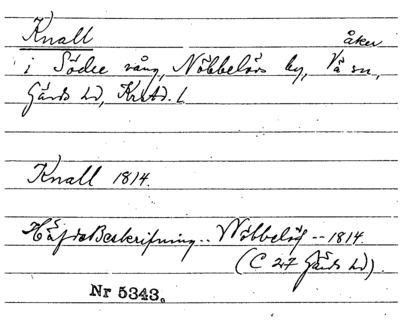 Knall
åker
i Södre vång, Nöbbelövs by, Vä sn,
Gärds hd, Krist. l.
Knall 1814.
Häfda Beskrifning.. Nöbbelöf -- 1814
(C 27 Gärds hd).
Nr 5343.